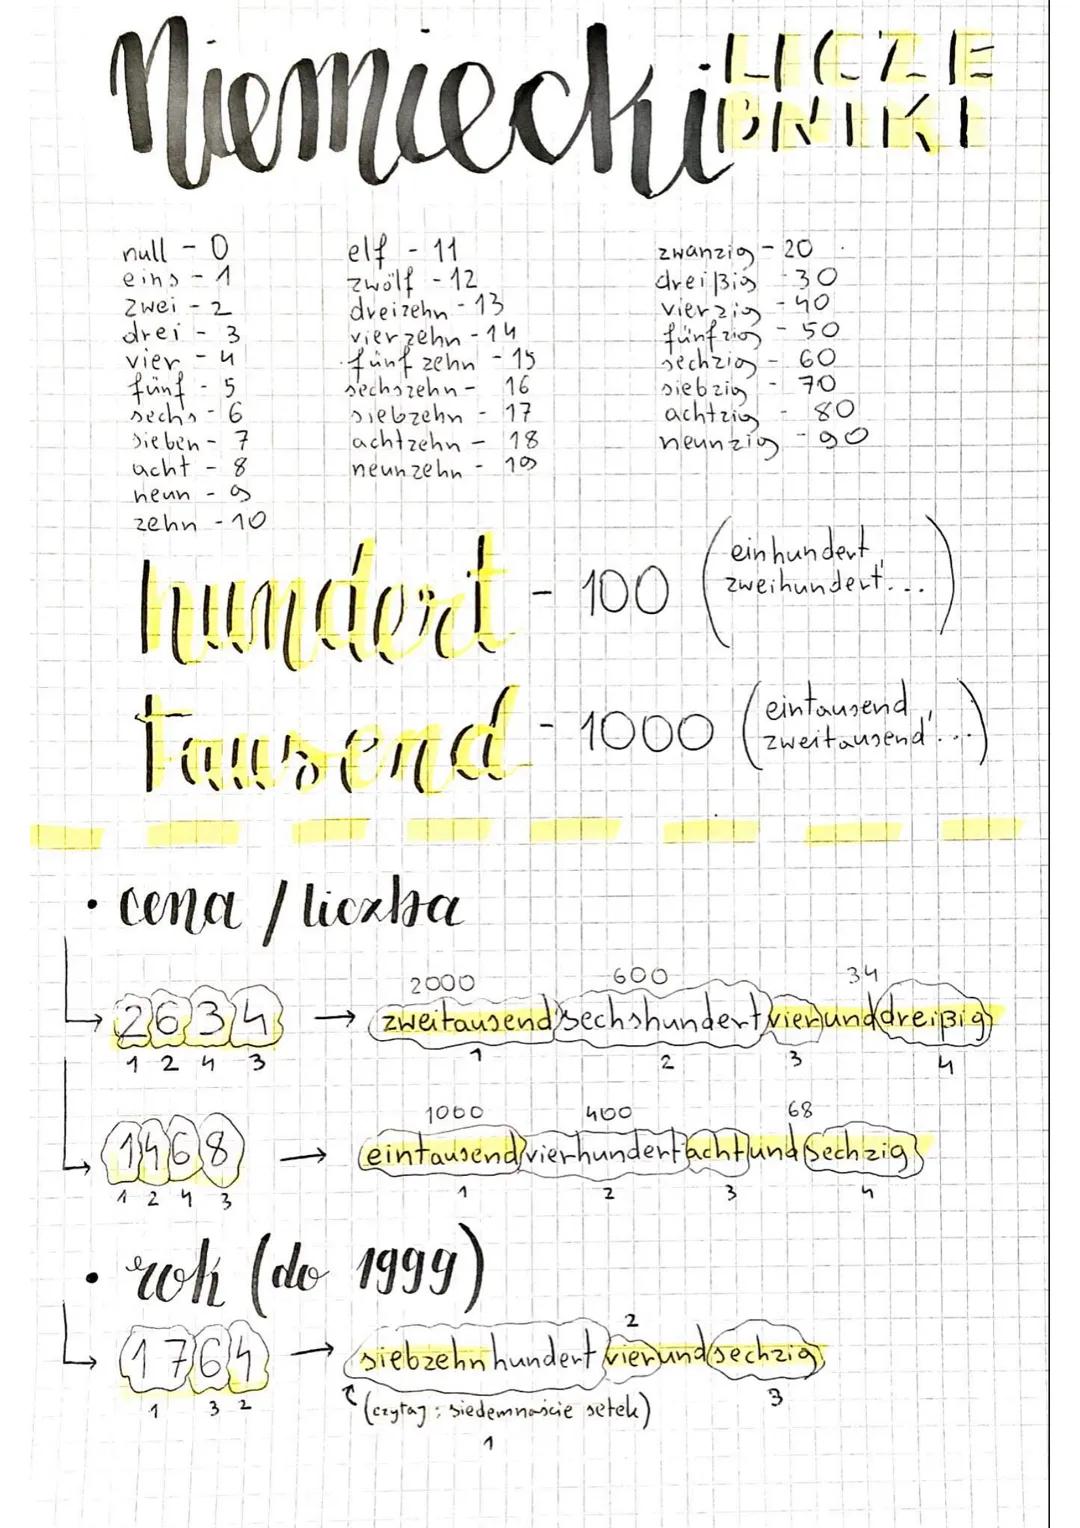 Niemiecki
LICZE
BNIKI
null - 0
eins - 1
zwei - 2
drei - 3
vier - 4
fünf - 5
sechs - 6
sieben - 7
acht - 8
neun - 9
zehn - 10
elf - 11
zwölf - 12
dreizehn - 13
vierzehn - 14
fünfzehn - 15
sechszehn - 16
siebzehn - 17
achtzehn - 18
neunzehn - 19
zwanzig - 20
dreißig - 30
vierzig - 40
fünfzig - 50
sechzig - 60
siebzig - 70
achtzig - 80
neunzig - 90
hundert - 100 (einhundert,
zweihundert...)
tausend - 1000 (eintausend,
zweitausend...)
• cena / liczba
2000 600 34
2634 → zweitausendsechshundertvierunddreißig
1 2 4 3 1 2 3 4
1000 400 68
1468 → eintausendvierhundertachtundsechzig
1 2 4 3 1 2 3 4
• rok (do 1999)
2
1764 → siebzehnhundertvierundsechzig
1 3 2 (czytaj: siedemnaście setek) 3
1